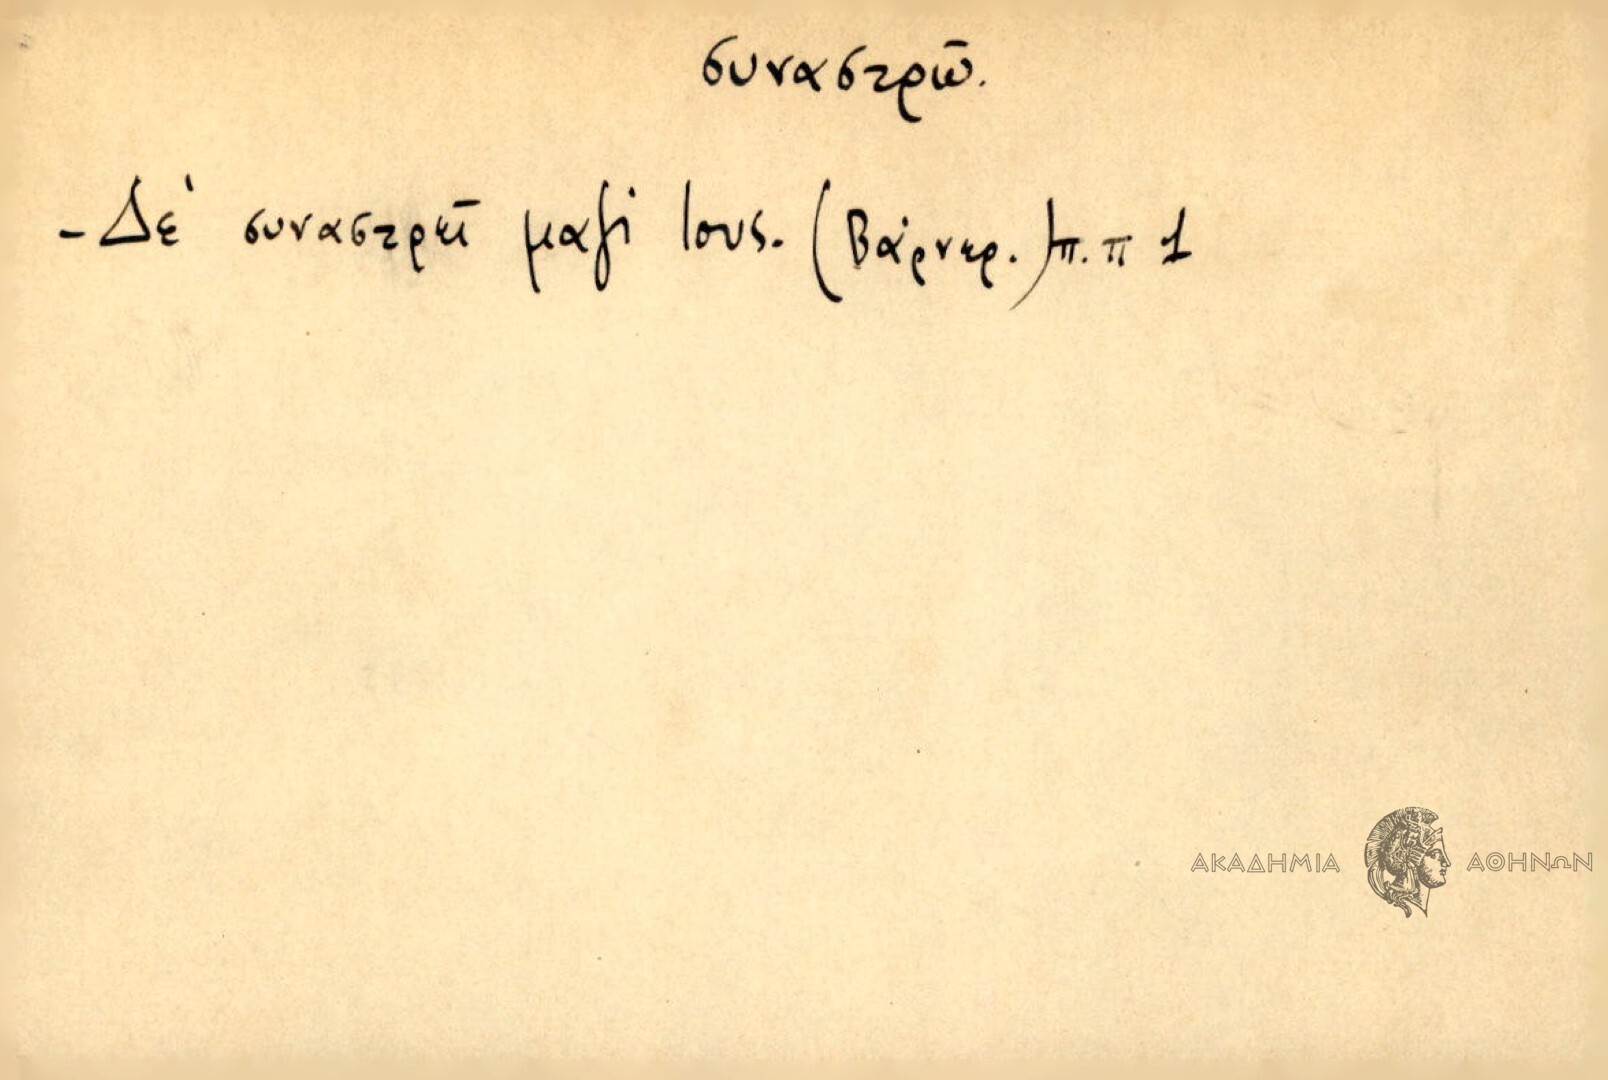 συναστρῶ.
- Δὲ συναστρεῖ μαζί τους. (Βάρνερ.) π. π 1
ΑΚΑΔΗΜΙΑ ΑΘΗΝΩΝ